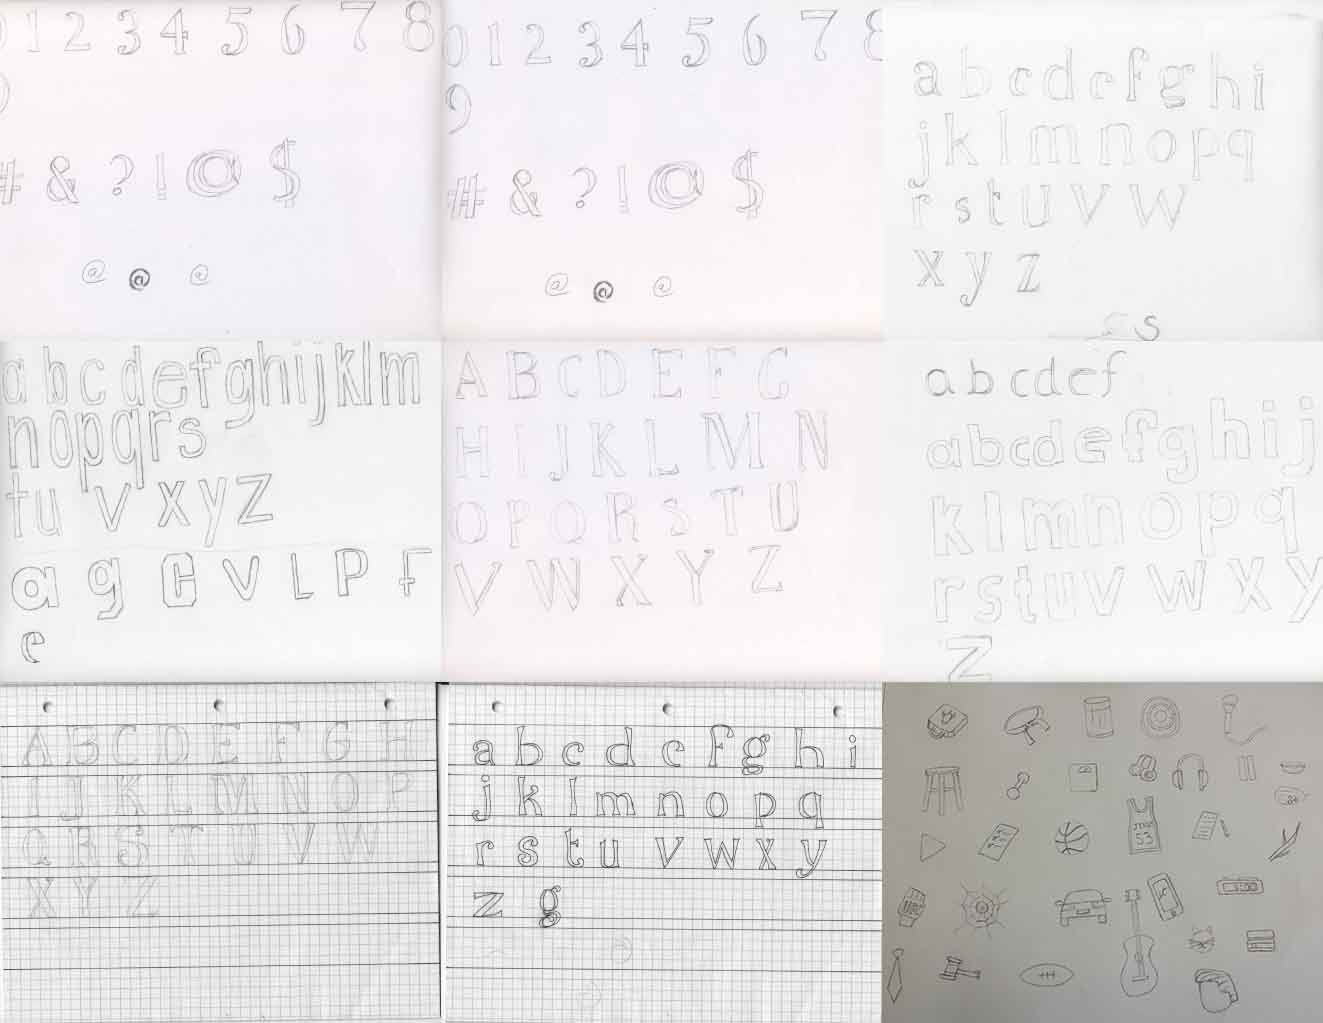 0 1 2 3 4 5 6 7 8
9
# & ? ! @ $
@ @ @
0 1 2 3 4 5 6 7 8
9
# & ? ! @ $
@ @ @
a b c d e f g h i
j k l m n o p q
r s t u v w
x y z
s
a b c d e f g h i j k l m
n o p q r s
t u v x y z
a g C V L P F
e
A B C D E F G
H i J K L M N
O P Q R S T U
V W X Y Z
a b c d e f
a b c d e f g h i j
k l m n o p q
r s t u v w x y
z
A B C D E F G H
I J K L M N O P
Q R S T U V W
X Y Z
a b c d e f g h i
j k l m n o p q
r s t u v w x y
z g
53